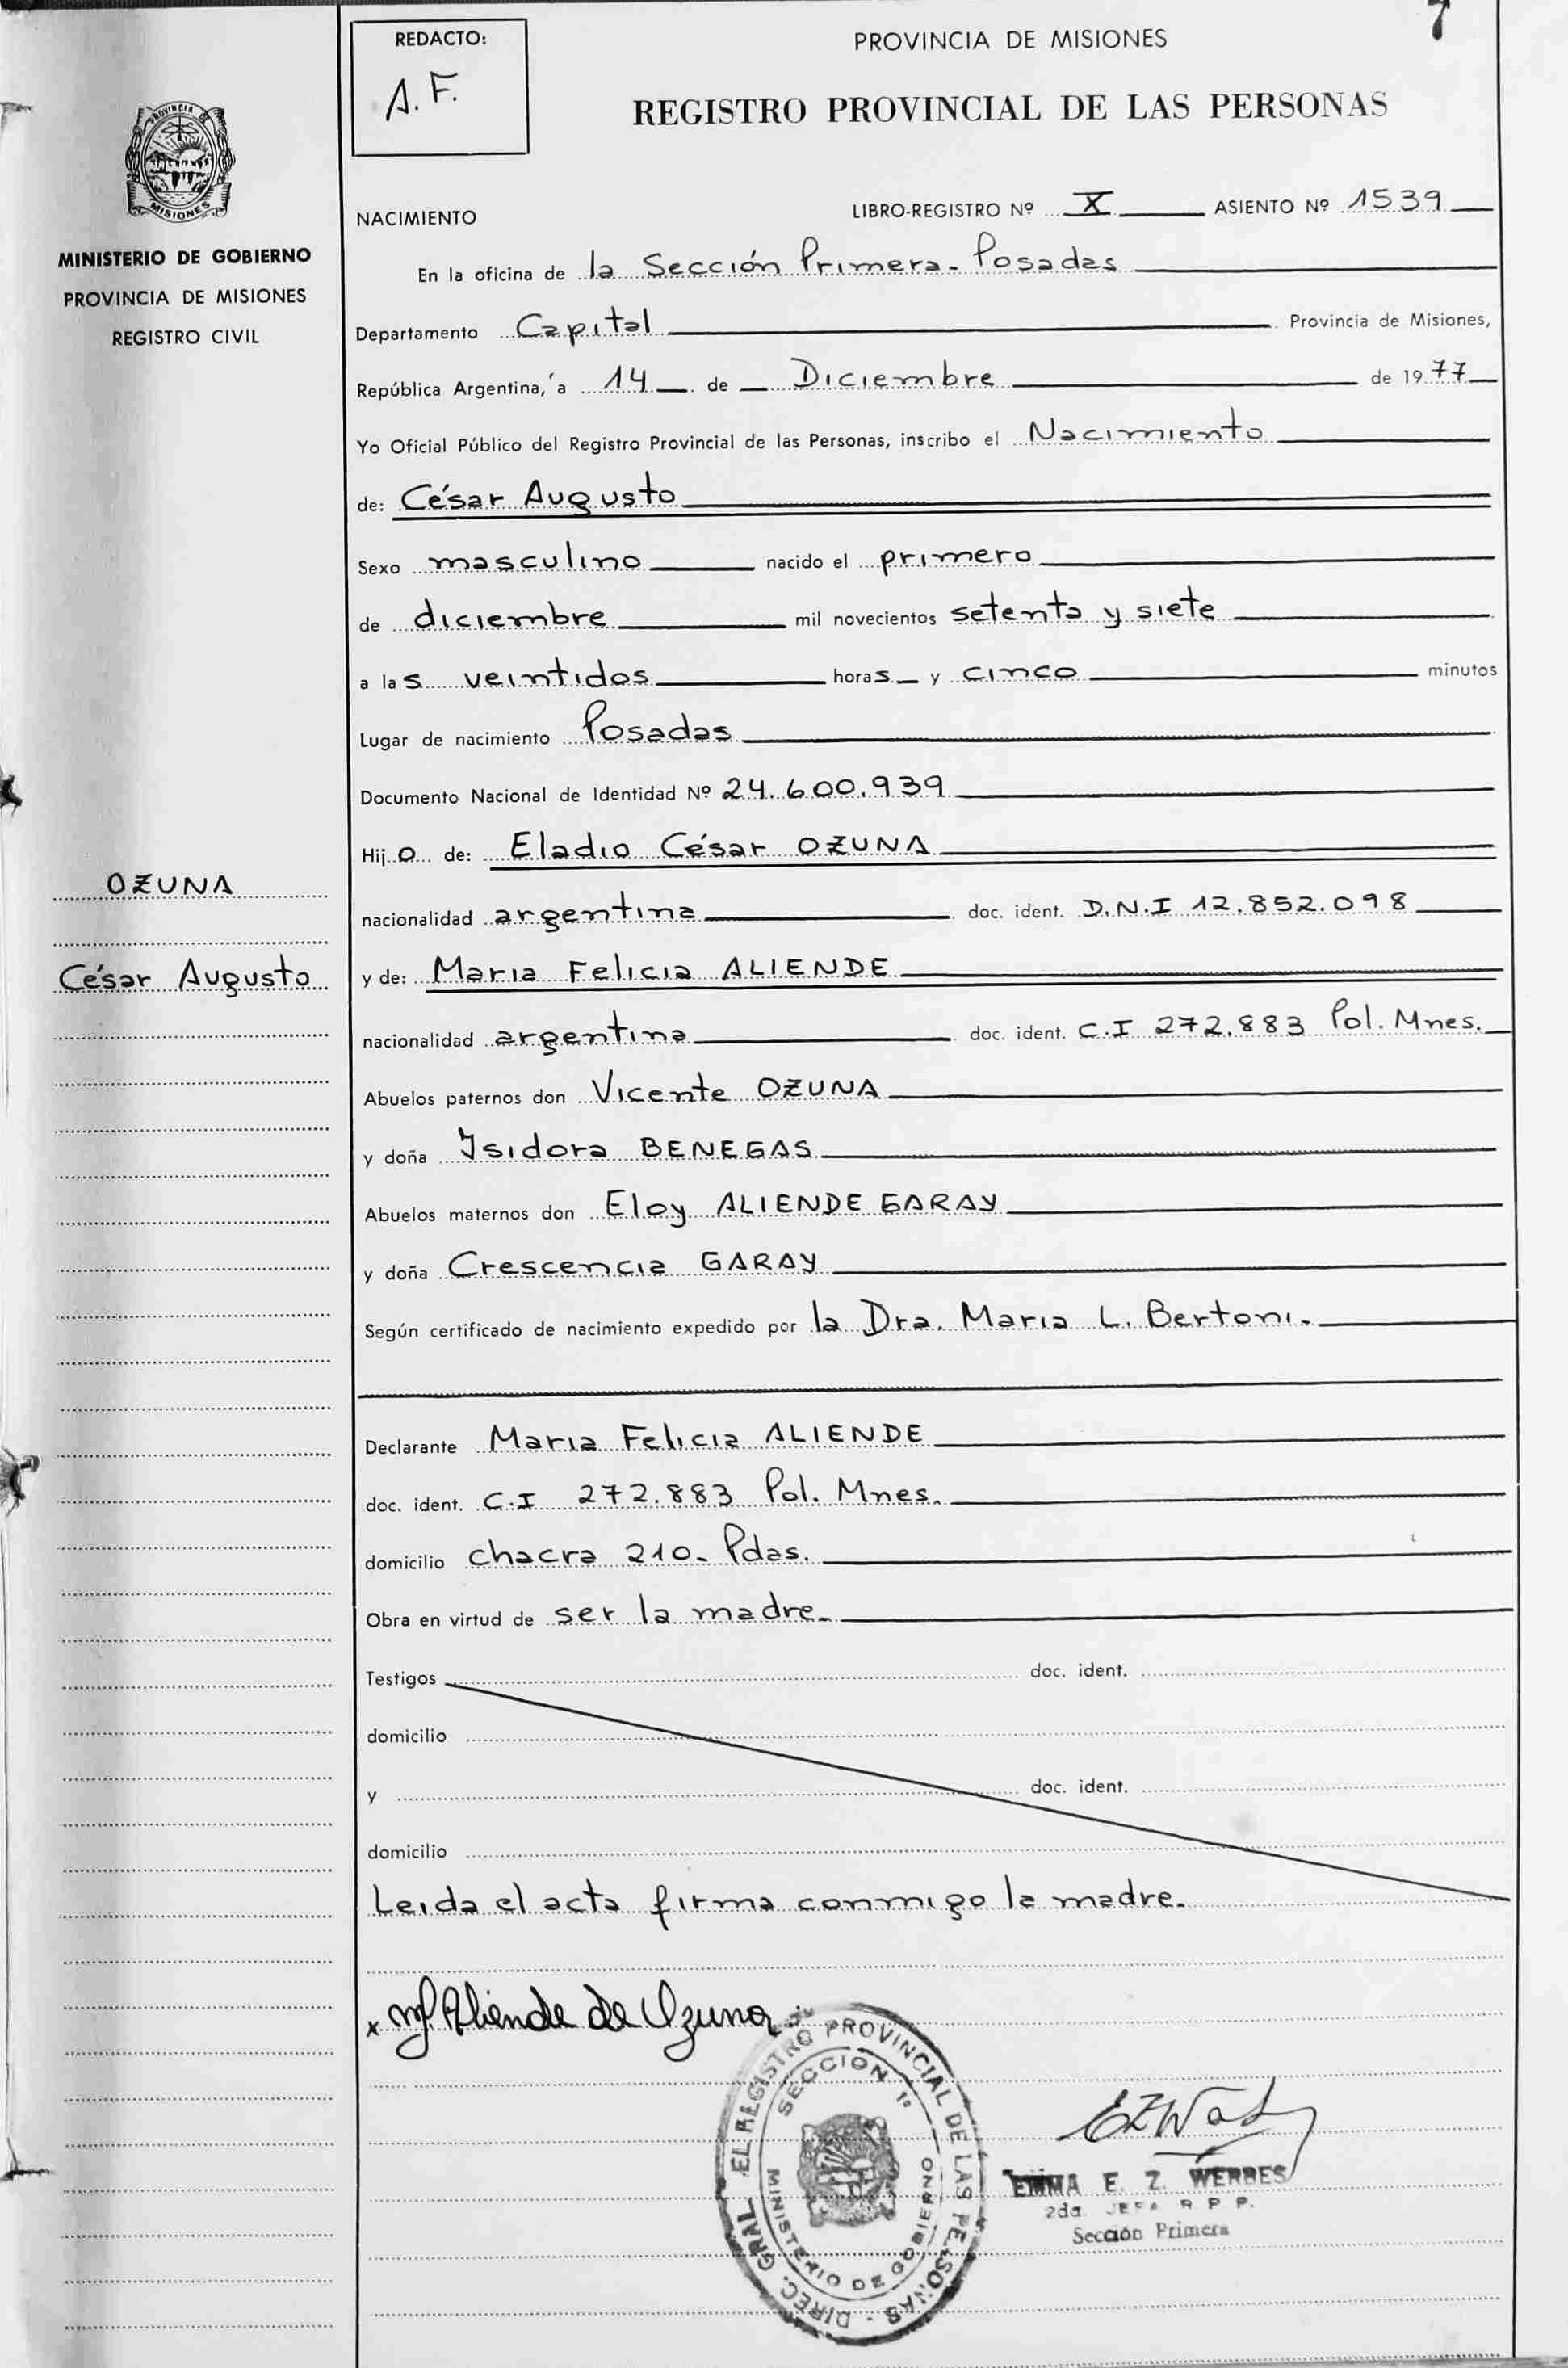 7
REDACTO:
A.F.
PROVINCIA DE MISIONES
REGISTRO PROVINCIAL DE LAS PERSONAS
PROVINCIA
MISIONES
MINISTERIO DE GOBIERNO
PROVINCIA DE MISIONES
REGISTRO CIVIL
NACIMIENTO
LIBRO-REGISTRO Nº X ASIENTO Nº 1539
En la oficina de la Sección Primera- Posadas
Departamento Capital Provincia de Misiones,
República Argentina, a 14 de Diciembre de 1977
Yo Oficial Público del Registro Provincial de las Personas, inscribo el Nacimiento
de: César Augusto
Sexo masculino nacido el primero
de diciembre mil novecientos setenta y siete
a las veintidos horas y cinco minutos
Lugar de nacimiento Posadas
Documento Nacional de Identidad Nº 24.600.939
Hijo de: Eladio César OZUNA
OZUNA
nacionalidad argentina doc. ident. D.N.I 12.852.098
César Augusto
y de: Maria Felicia ALIENDE
nacionalidad argentina doc. ident. C.I 272.883 Pol. Mnes.
Abuelos paternos don Vicente OZUNA
y doña Isidora BENEGAS
Abuelos maternos don Eloy ALIENDE GARAY
y doña Crescencia GARAY
Según certificado de nacimiento expedido por la Dra. Maria L. Bertoni.-
Declarante Maria Felicia ALIENDE
doc. ident. C.I 272.883 Pol. Mnes.
domicilio chacra 210- Pdas.
Obra en virtud de ser la madre-
Testigos doc. ident.
domicilio
y doc. ident.
domicilio
Leida el acta firma conmigo la madre.
x Mf Aliende de Ozuna
DIREC. GRAL. EL REGISTRO PROVINCIAL DE LAS PERSONAS -
SECCION 1ª
MINISTERIO DE GOBIERNO
EMMA E. Z. WERBES
2da. JEFA R P P.
Sección Primera